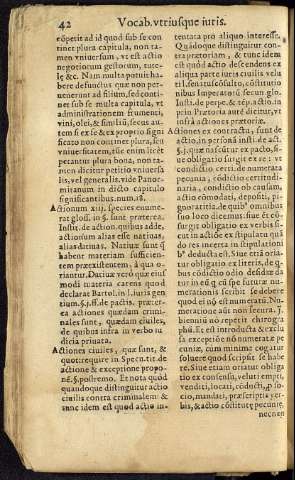 42 Vocab. vtriusque iuris.
cōpetit ad id quod sub se con
tinet plura capitula, non ta-
men vniuersum, vt est actio
negotiorum gestorum, tute-
læ &c. Nam multa potuit ha-
bere defunctus quæ non per-
uenerunt ad filium, sed conti-
net sub se multa capitula, vt
administrationem frumenti,
vini, olei, & similiū, secus au-
tem si ex se & ex proprio signi
ficato non continet plura, seu
vniuersitatem, tūc enim licèt
pecuntur plura bona, non ta-
men dicitur petitio vniuersa
lis, vel generalis. vide Panor-
mitanum in dicto capitulo
significantibus. num. 18.
Actionum xiij. species enume-
rat gloss. in §. sunt præterea.
Instit. de action. quibus adde,
actionum alias esse natiuas,
alias datiuas. Natiuæ sunt q̄
habent materiam sufficien-
tem præexistentem, à qua o-
riantur. Datiuæ verò quæ eius
modi materia carens quod
declarat Bartol. in l. iuris gen
tium. §. ff. de pactis. præter-
ea actiones quædam crimi-
nales sunt, quædam ciuiles,
de quibus infra in verbo iu
dicia priuata.
Actiones ciuiles, quæ sunt, &
quot require in Specu. tit. de
actione & exceptione propo-
nē. §. postremo. Et nota quòd
quandoque distinguitur actio
ciuilis contra criminalem &
tunc idem est quod actio in-
tentata pro aliquo interesse.
Quādoque distinguitur con-
tra prætoriam, & tunc idem
est quòd actio descendens ex
aliqua parte iuris ciuilis velu
ti l. senatusconsulto, cōstitutio
nibus Imperatorū. secun. glo.
Instit. de perpe. & tēp. actio. in
prin. Prætoria autē dicitur, vt
infrà actiones prætoriæ.
Actiones ex contractu, sunt de
actio. in personā insti. de act.
§. j. quæ nascuntur ex pacto, si-
ue obligatio surgit ex re: vt
condictio certi, de numerata
pecunia, cōdictio certitudi-
naria, condictio ob causam,
actio cōmodati, depositi, pi-
gnoratitia. de quib⁹ omnibus
suo loco dicemus: siue ēt cō-
surgit obligatio ex verbis si-
cut in actiōe ex stipulatu quā
do res incerta in stipulationi
b⁹ deducta est. Siue etiā oria-
tur obligatio ex literis, de q-
bus cōdictio odio desidiæ da
tur in eū q sine futuræ nu-
merationis scribit se debere
quod ei nō est numeratū. Nu-
meratione aūt non secuta. Is
biennū nō repetit chirogra
phū. Et est introducta & exclu
sa exceptiōe nō numeratæ pe
cuniæ, cùm minime cogatur
soluere quod scripsit se habe
re. Siue etiam oriatur obliga
tio ex consensu, veluti empti,
venditi, locati, cōducti, pro so-
cio, mandati, præscriptis ver-
bis, & actio cōstitutę pecunię,
necnon